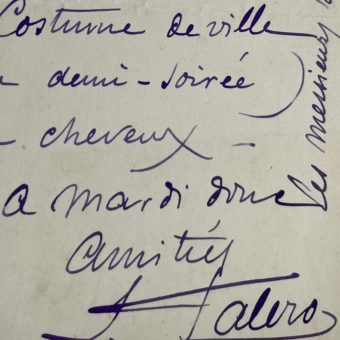 Costume de ville
demi-soirée
- cheveux -
a mardi donc
Amitiés
Valero
les messieurs